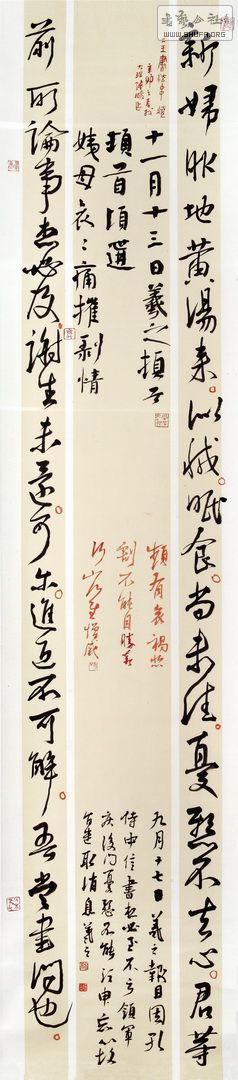 新婦服地黄湯来似減眠食尚未佳憂懸不去心君等
十一月十三日羲之頓首
頓首頃遘
姨母哀哀痛摧剥情
頻有哀禍悲
割不能自勝奈
何省慰增感
九月十七日羲之報且因孔
侍中信書想必至不知領軍
疾後問憂懸不能須申忘心故
旨遣取消息羲之
前所論事想必及謝生未還可尔進退不可解吾當書問也
WWW.SHUFA.ORG